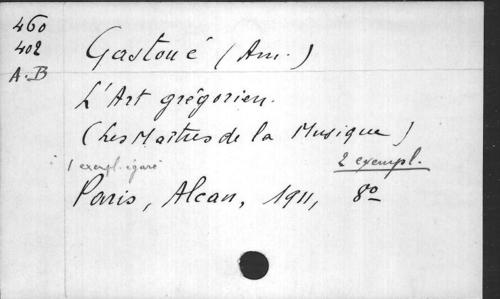 460
402
A.B
Gastoué (Am.)
L'Art grégorien.
(Les Maîtres de la Musique)
1 exempl. égaré
2 exempl.
Paris, Alcan, 1911, 8º